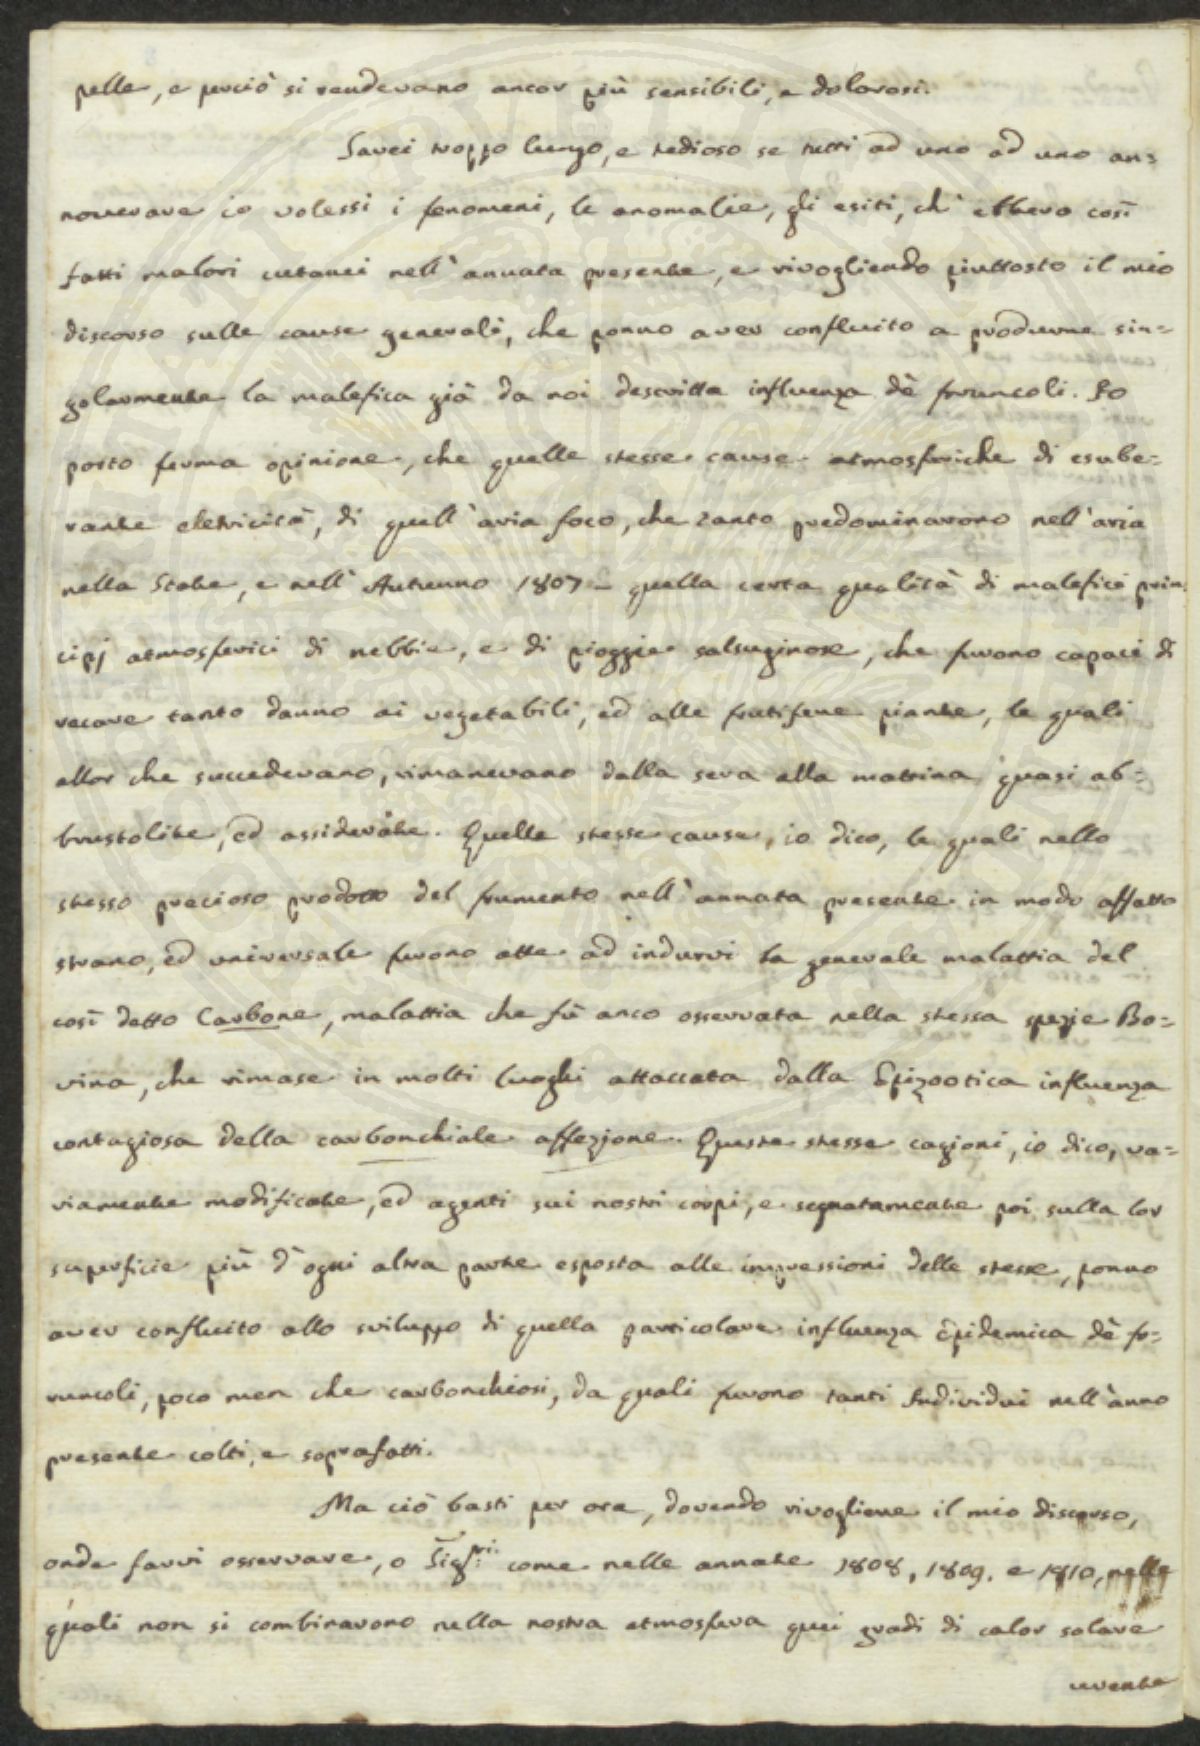 pelle, e perciò si rendevano ancor più sensibili, e dolorosi.
Sarei troppo lungo, e tedioso se tutti ad uno ad uno an=
noverare io volessi i fenomeni, le anomalie, gli esiti, ch' ebbero così
fatti malori cutanei nell' annata presente, e rivogliendo piuttosto il mio
discorso sulle cause generali, che ponno aver confluito a produrne sin=
golarmente la malefica già da noi descritta influenza dè fruncoli. Io
porto ferma opinione, che quelle stesse cause atmosferiche di esube=
rante eletricità, di quell' aria foco, che tanto predominarono nell' aria
nella State, e nell' Autunno 1807 – quella certa qualità di malefici prin=
cipj atmosferici di nebbie, e di pioggie salsuginose, che furono capaci di
recare tanto danno ai vegetabili, ed alle frutifere piante, le quali
allor che succedevano, rimanevano dalla sera alla mattina quasi ab=
brustolite, ed assiderate. Quelle stesse cause, io dico, le quali nello
stesso precioso prodotto del frumento nell' annata presente in modo affatto
strano, ed universale furono atte ad indurvi la generale malattia del
così detto Carbone, malattia che fù anco osservata nella stessa spezie Bo=
vina, che rimase in molti luoghi attaccata dalla Epizootica influenza
contagiosa della carbonchiale affezione. Queste stesse cagioni, io dico, va=
riamente modificate, ed agenti sui nostri corpi, e segnatamente poi sulla lor
superficie più d' ogni altra parte esposta alle impressioni delle stesse, ponno
aver confluito allo sviluppo di quella particolare influenza Epidemica dè fo=
runcoli, poco men che carbonchiosi, da quali furono tanti Individui nell' anno
presente colti, e soprafatti.
Ma ciò basti per ora, dovendo rivogliere il mio discorso,
onde farvi osservare, o Sig.ri come nelle annate 1808, 1809, e 1810, nelle
quali non si combinarono nella nostra atmosfera quei gradi di calor solare